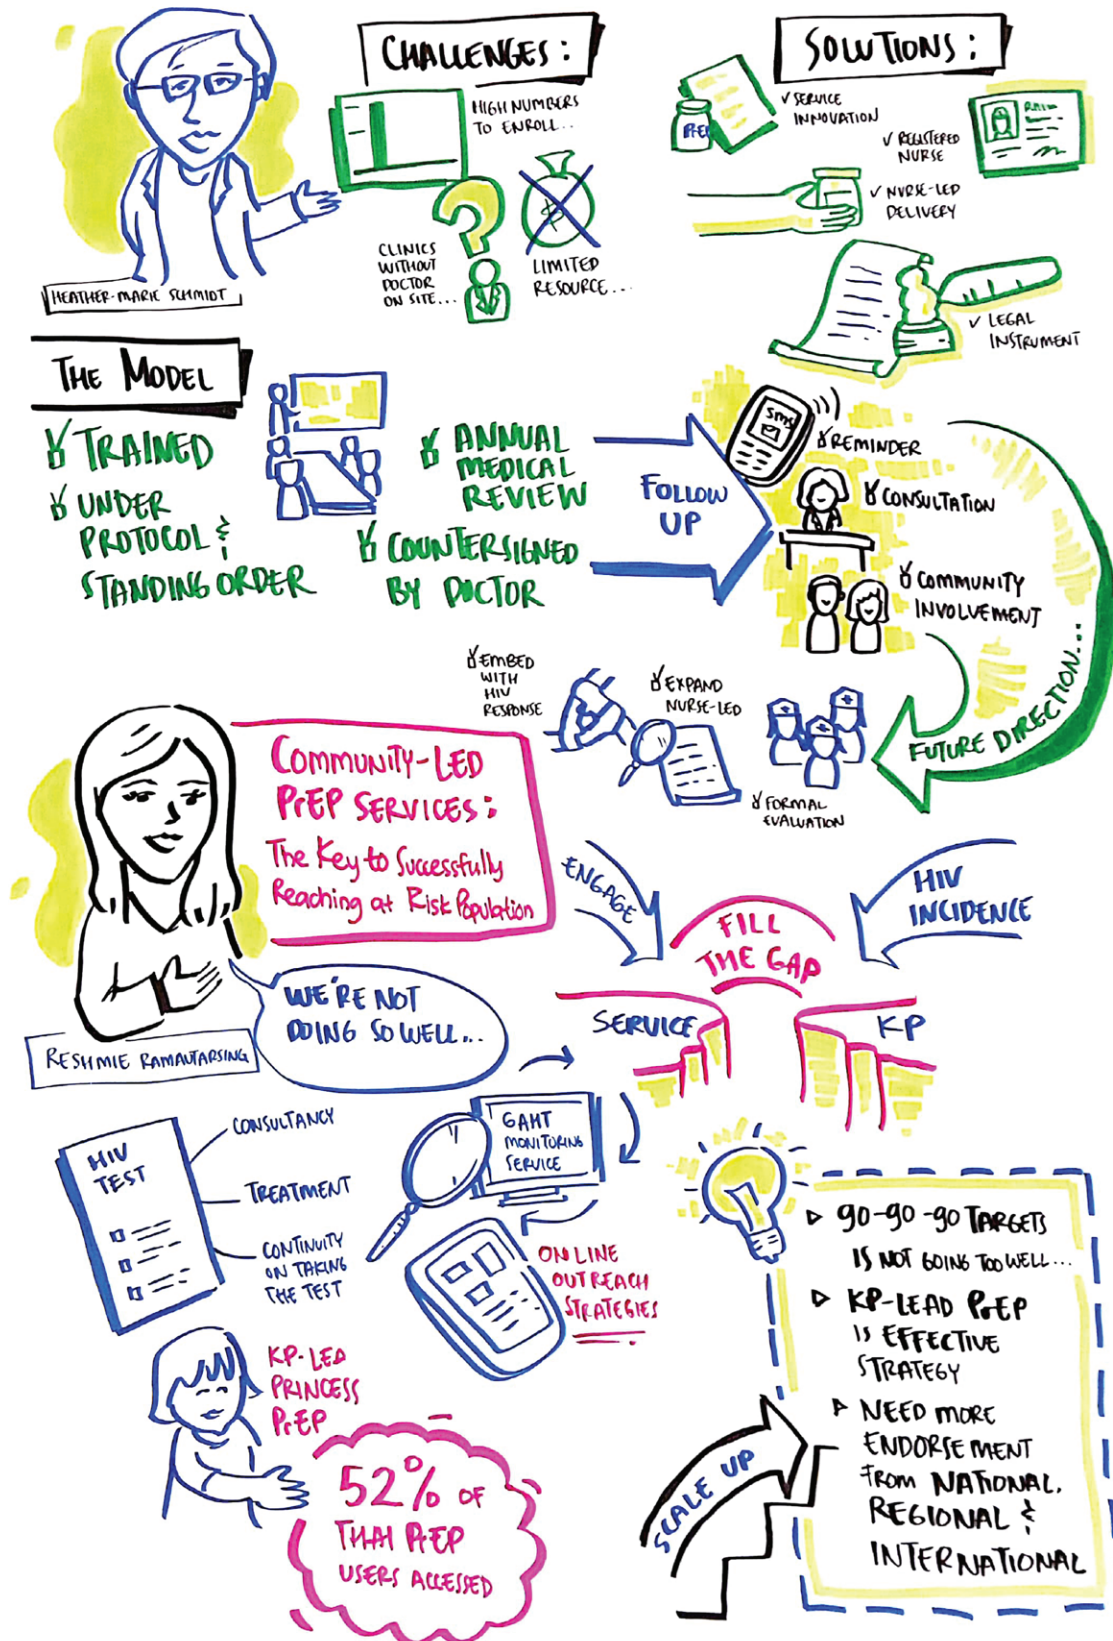 CHALLENGES:
HIGH NUMBERS
TO ENROLL...
CLINICS
WITHOUT
DOCTOR
ON SITE...
$
LIMITED
RESOURCE...
HEATHER-MARIE SCHMIDT
SOLUTIONS:
PrEP
✓ SERVICE
INNOVATION
✓ REGISTERED
NURSE
✓ NURSE-LED
DELIVERY
✓ LEGAL
INSTRUMENT
THE MODEL
TRAINED
UNDER
PROTOCOL &
STANDING ORDER
ANNUAL
MEDICAL
REVIEW
COUNTERSIGNED
BY DOCTOR
FOLLOW
UP
SMS
REMINDER
CONSULTATION
COMMUNITY
INVOLVEMENT
FUTURE DIRECTION...
EMBED
WITH
HIV
RESPONSE
EXPAND
NURSE-LED
FORMAL
EVALUATION
COMMUNITY-LED
PrEP SERVICES:
The Key to Successfully
Reaching at Risk Population
WE'RE NOT
DOING SO WELL...
RESHMIE RAMAUTARSING
ENGAGE
HIV
INCIDENCE
FILL
THE GAP
SERVICE
KP
HIV
TEST
CONSULTANCY
TREATMENT
CONTINUITY
ON TAKING
THE TEST
GAHT
MONITORING
SERVICE
ONLINE
OUTREACH
STRATEGIES
KP-LED
PRINCESS
PrEP
52% OF
THAI PrEP
USERS ACCESSED
SCALE UP
▷ 90-90-90 TARGETS
IS NOT GOING TOO WELL...
▷ KP-LEAD PrEP
IS EFFECTIVE
STRATEGY
▷ NEED MORE
ENDORSEMENT
FROM NATIONAL,
REGIONAL &
INTERNATIONAL